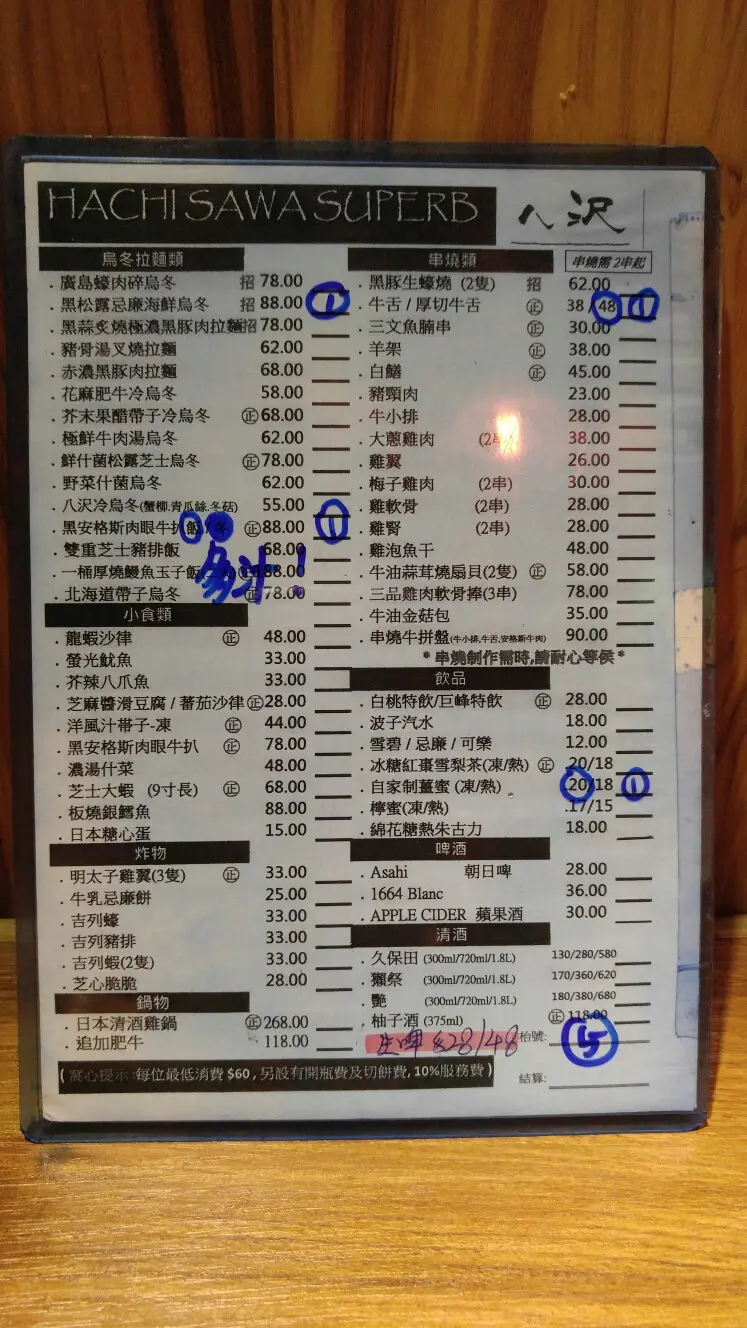 HACHI SAWA SUPERB 八沢
烏冬拉麵類
. 廣島蠔肉碎烏冬 招 78.00
. 黑松露忌廉海鮮烏冬 招 88.00 1
. 黑蒜炙燒極濃黑豚肉拉麵招 78.00
. 豬骨湯叉燒拉麵 62.00
. 赤濃黑豚肉拉麵 68.00
. 花麻肥牛冷烏冬 58.00
. 芥末果醋帶子冷烏冬 ㊣68.00
. 極鮮牛肉湯烏冬 62.00
. 鮮什菌松露芝士烏冬 ㊣78.00
. 野菜什菌烏冬 62.00
. 八沢冷烏冬(蟹柳.青瓜絲.冬菇) 55.00
. 黑安格斯肉眼牛扒飯/冬 ㊣88.00 1
. 雙重芝士豬排飯 68.00
. 一桶厚燒鰻魚玉子飯 88.00
. 北海道帶子烏冬 ㊣78.00
多汁!
小食類
. 龍蝦沙律 ㊣ 48.00
. 螢光魷魚 33.00
. 芥辣八爪魚 33.00
. 芝麻醬滑豆腐 / 蕃茄沙律㊣28.00
. 洋風汁帶子-凍 ㊣ 44.00
. 黑安格斯肉眼牛扒 ㊣ 78.00
. 濃湯什菜 48.00
. 芝士大蝦 (9寸長) ㊣ 68.00
. 板燒銀鱈魚 88.00
. 日本糖心蛋 15.00
炸物
. 明太子雞翼(3隻) ㊣ 33.00
. 牛乳忌廉餅 25.00
. 吉列蠔 33.00
. 吉列豬排 33.00
. 吉列蝦(2隻) 33.00
. 芝心脆脆 28.00
鍋物
. 日本清酒雞鍋 ㊣268.00
. 追加肥牛 118.00
串燒類 串燒需 2串起
. 黑豚生蠔燒 (2隻) 招 62.00
. 牛舌 / 厚切牛舌 ㊣ 38 / 48 1
. 三文魚腩串 ㊣ 30.00
. 羊架 ㊣ 38.00
. 白鱔 ㊣ 45.00
. 豬頸肉 23.00
. 牛小排 28.00
. 大蔥雞肉 (2串) 38.00
. 雞翼 26.00
. 梅子雞肉 (2串) 30.00
. 雞軟骨 (2串) 28.00
. 雞腎 (2串) 28.00
. 雞泡魚干 48.00
. 牛油蒜茸燒扇貝(2隻) ㊣ 58.00
. 三品雞肉軟骨捧(3串) 78.00
. 牛油金菇包 35.00
. 串燒牛拼盤(牛小排,牛舌,安格斯牛肉) 90.00
* 串燒制作需時,請耐心等侯 *
飲品
. 白桃特飲/巨峰特飲 ㊣ 28.00
. 波子汽水 18.00
. 雪碧 / 忌廉 / 可樂 12.00
. 冰糖紅棗雪梨茶(凍/熱) ㊣ .20/18
. 自家制薑蜜 (凍/熱) .20/18 1
. 檸蜜(凍/熱) .17/15
. 綿花糖熱朱古力 18.00
啤酒
. Asahi 朝日啤 28.00
. 1664 Blanc 36.00
. APPLE CIDER 蘋果酒 30.00
清酒
. 久保田 (300ml/720ml/1.8L) 130/280/580
. 獺祭 (300ml/720ml/1.8L) 170/360/620
. 艷 (300ml/720ml/1.8L) 180/380/680
. 柚子酒 (375ml) ㊣ 118.00
生啤 $28/48 枱號: 5
( 窩心提示 :每位最低消費 $60 , 另設有開瓶費及切餅費, 10%服務費 )
結算: